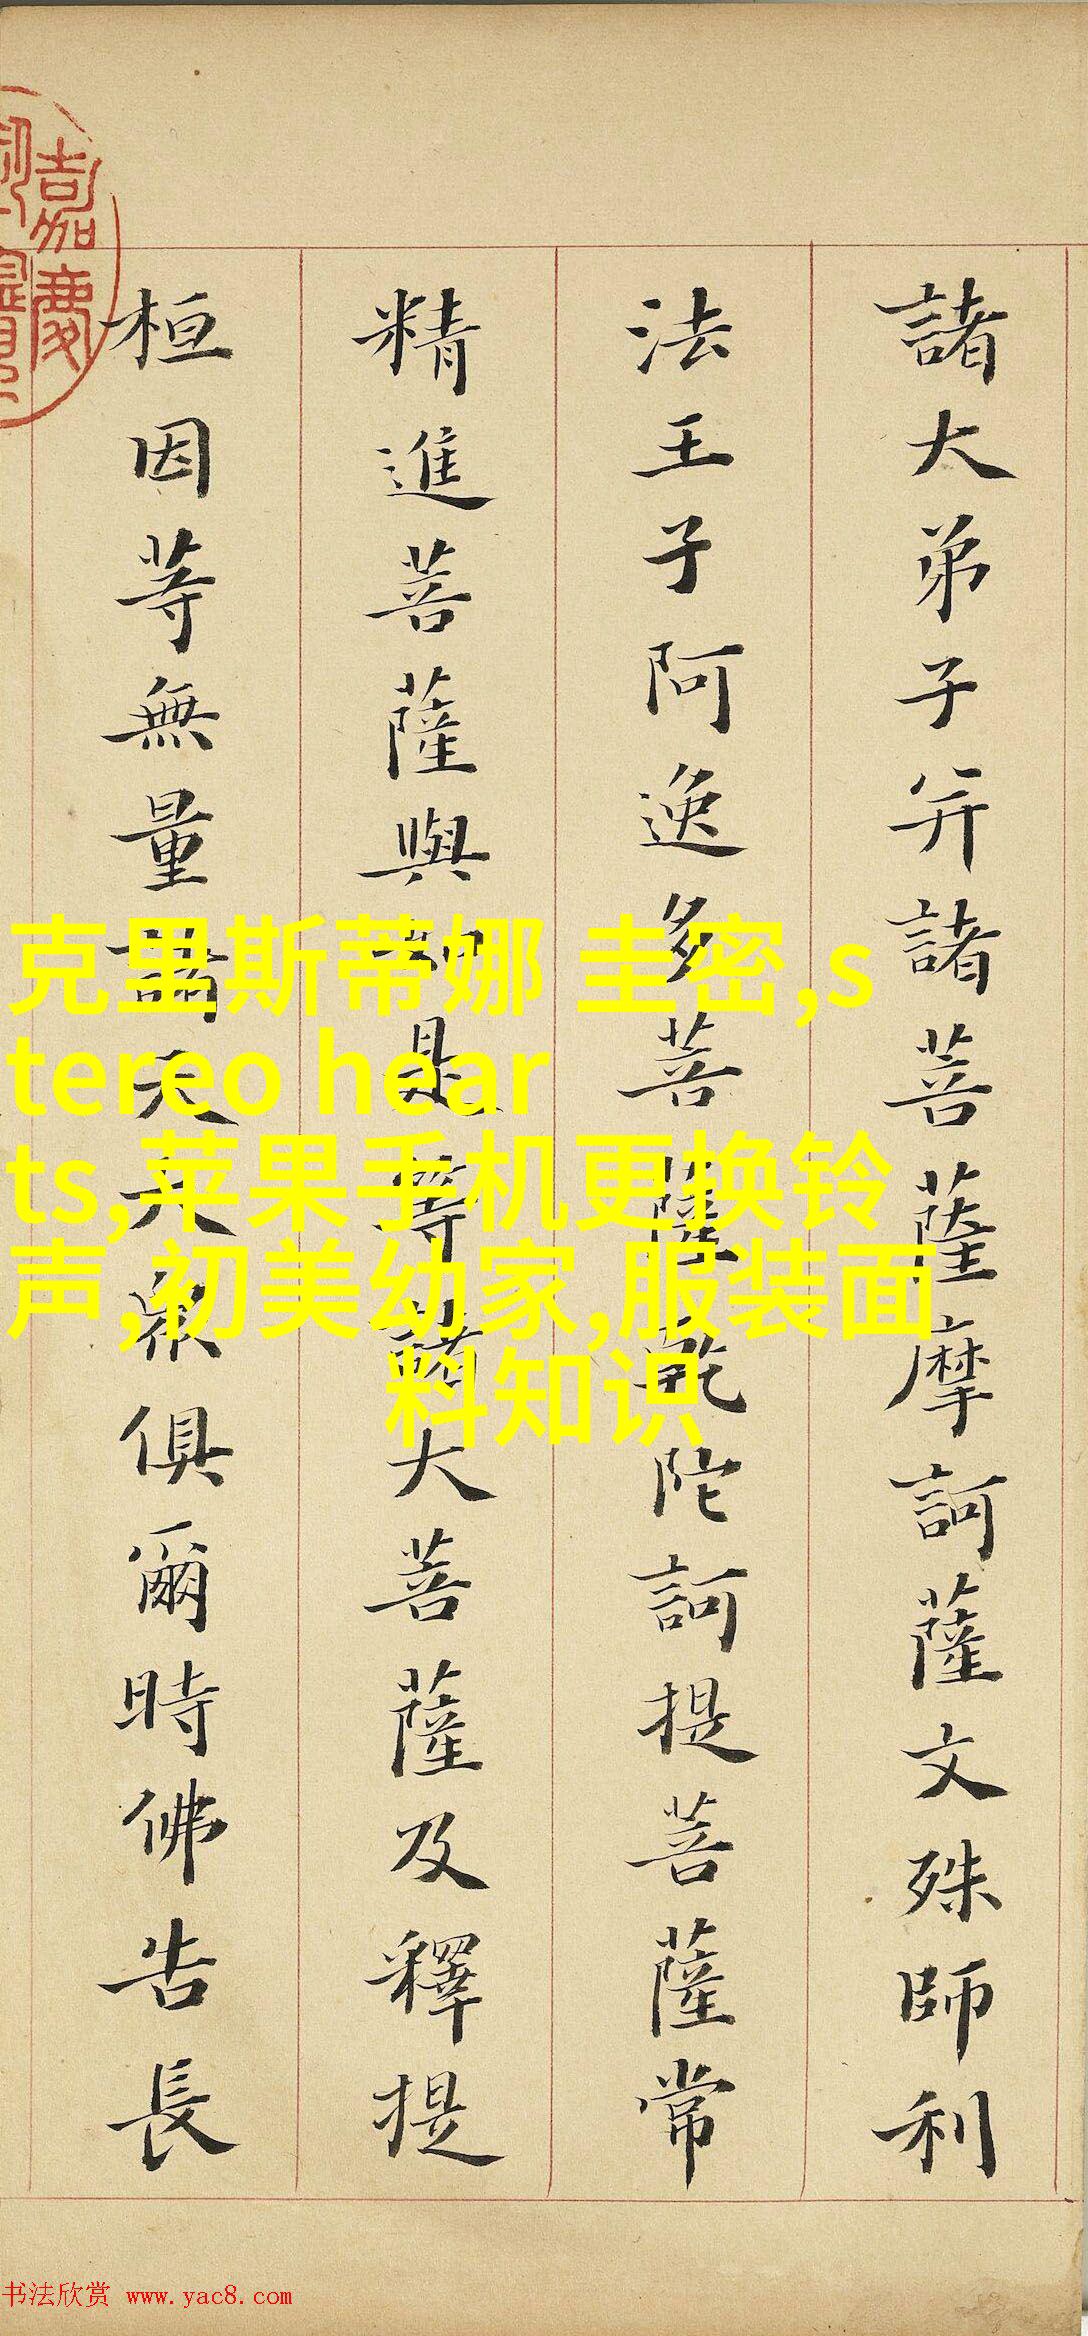 諸大弟子并諸菩薩摩訶薩文殊師利
法王子阿逸多菩薩乾陀訶提菩薩常
精進菩薩與如是等諸大菩薩及釋提
桓因等無量諸天大衆俱爾時佛告長
嘉慶
克里斯蒂娜 圭密,s
tereo hear
ts,苹果手机更换铃
声,初美幼家,服装面
料知识
书法欣赏 www.yac8.com